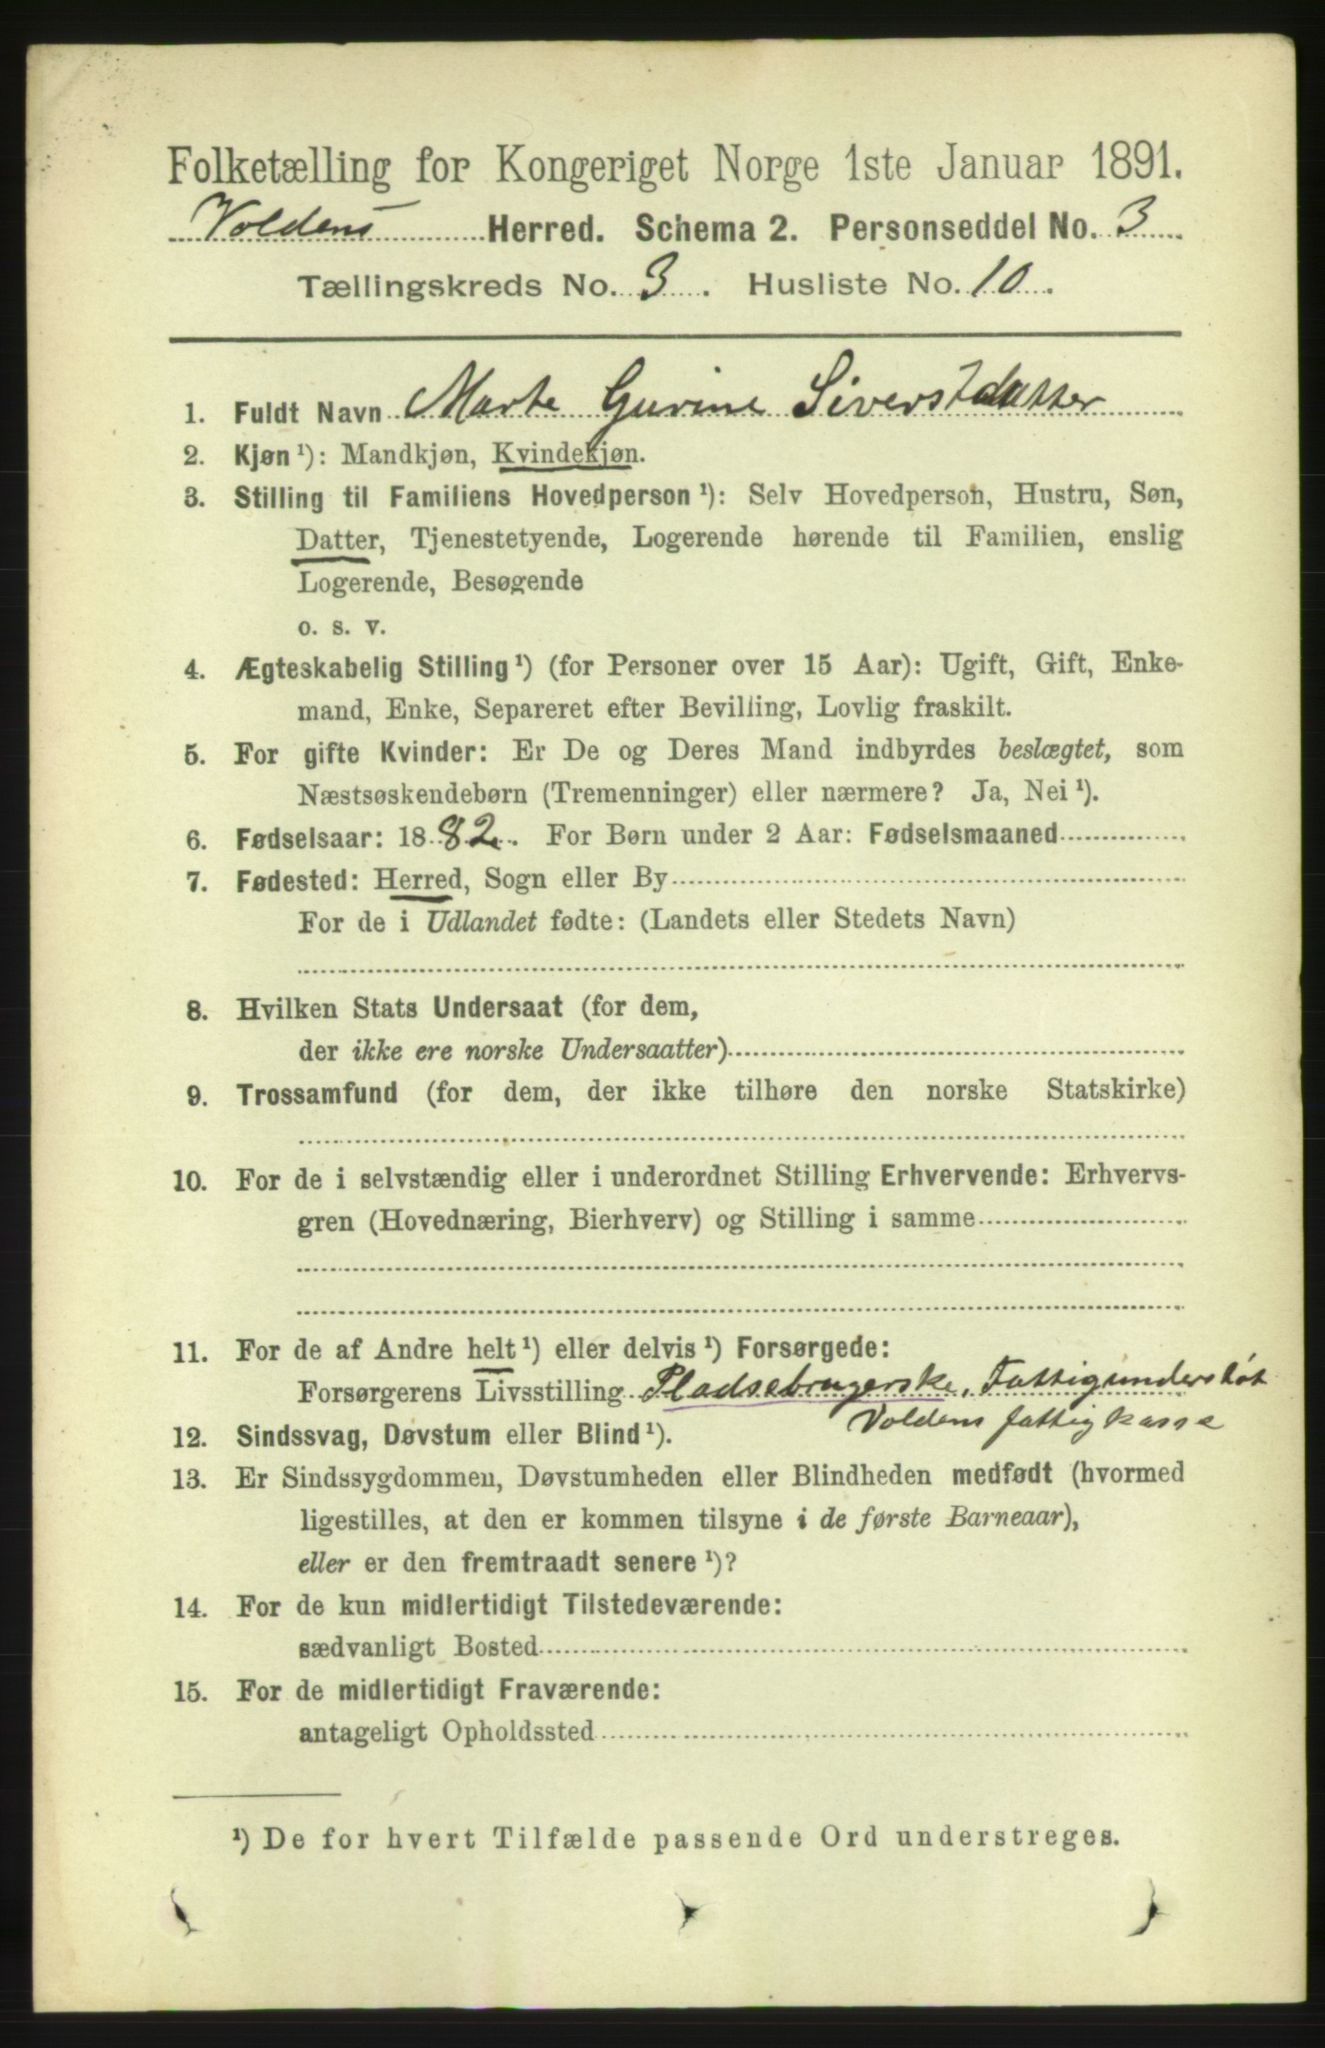 Folketælling for Kongeriget Norge 1ste Januar 1891.
Voldens Herred. Schema 2. Personseddel No. 3
Tællingskreds No. 3. Husliste No. 10.
1. Fuldt Navn Marte Gurine Siverstdatter
2. Kjøn¹): Mandkjøn, Kvindekjøn.
3. Stilling til Familiens Hovedperson¹): Selv Hovedperson, Hustru, Søn,
Datter, Tjenestetyende, Logerende hørende til Familien, enslig
Logerende, Besøgende
o. s. v.
4. Ægteskabelig Stilling¹) (for Personer over 15 Aar): Ugift, Gift, Enke-
mand, Enke, Separeret efter Bevilling, Lovlig fraskilt.
5. For gifte Kvinder: Er De og Deres Mand indbyrdes beslægtet, som
Næstsøskendebørn (Tremenninger) eller nærmere? Ja, Nei¹).
6. Fødselsaar: 1882. For Børn under 2 Aar: Fødselsmaaned
7. Fødested: Herred, Sogn eller By
For de i Udlandet fødte: (Landets eller Stedets Navn)
8. Hvilken Stats Undersaat (for dem,
der ikke ere norske Undersaatter)
9. Trossamfund (for dem, der ikke tilhøre den norske Statskirke)
10. For de i selvstændig eller i underordnet Stilling Erhvervende: Erhvervs-
gren (Hovednæring, Bierhverv) og Stilling i samme
11. For de af Andre helt¹) eller delvis¹) Forsørgede:
Forsørgerens Livsstilling Pladsebrugerske, Fattigunderstøt
Voldens fattigkasse
12. Sindssvag, Døvstum eller Blind¹).
13. Er Sindssygdommen, Døvstumheden eller Blindheden medfødt (hvormed
ligestilles, at den er kommen tilsyne i de første Barneaar),
eller er den fremtraadt senere¹)?
14. For de kun midlertidigt Tilstedeværende:
sædvanligt Bosted
15. For de midlertidigt Fraværende:
antageligt Opholdssted
¹) De for hvert Tilfælde passende Ord understreges.